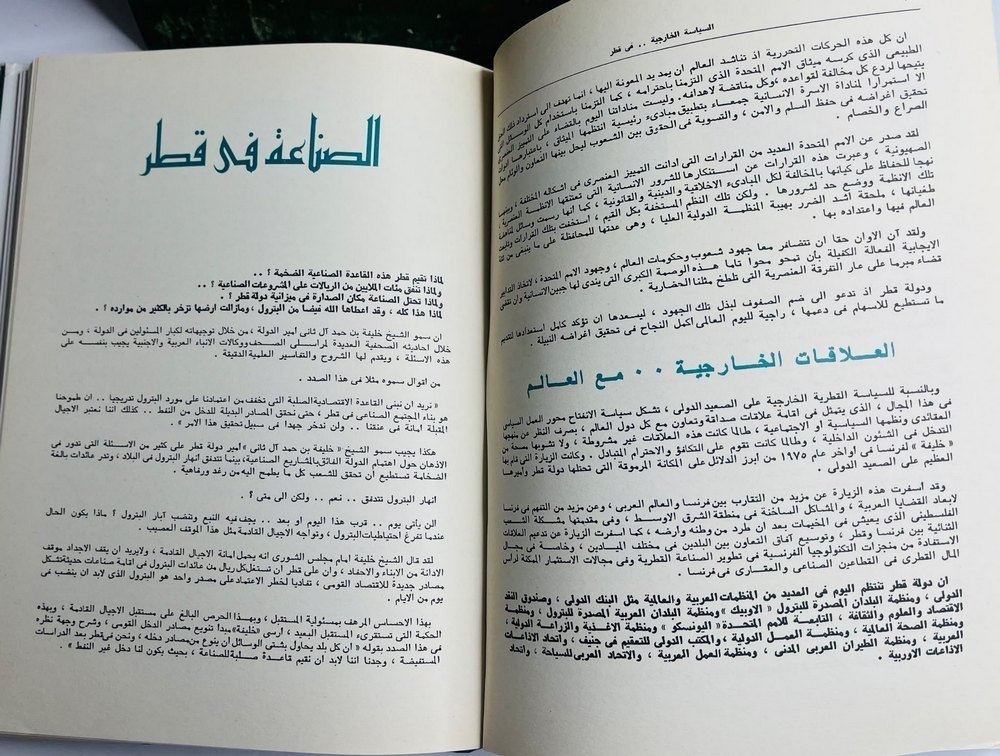 السياسة الخارجية .. فى قطر
ان كل هذه الحركات التحررية اذ تناشد العالم ان يمد يد المعونة اليها ، انما تهدف الى استرداد ذلك
الطبيعى الذى كرسه ميثاق الامم المتحدة الذى التزمنا باحترامه ، كما التزمنا باستخدام كل الوسائل
يتيحها لردع كل مخالفة لقواعده ، وكل مناقضة لاهدافه . وليست مناداتنا اليوم بالقضاء على التمييز
الا استمرارا لمناداة الاسرة الانسانية جمعاء بتطبيق مبادىء رئيسية انتظمها الميثاق ، باعتبارها
تحقيق اغراضه فى حفظ السلم والامن ، والتسوية فى الحقوق بين الشعوب ليحل بينها التعاون والوئام محل
الصراع والخصام .
لقد صدر عن الامم المتحدة العديد من القرارات التى ادانت التمييز العنصرى فى اشكاله المختلفة ، وبينها
الصهيونية ، وعبرت هذه القرارات عن استنكارها للشرور الانسانية التى تعتنقها الانظمة العنصرية ،
نهجا للحفاظ على كيانها بالمخالفة لكل المبادىء الاخلاقية والدينية والقانونية ، كما انها رسمت وسائل
تلك الانظمة ووضع حد لشرورها . ولكن تلك النظم المستخفة بكل القيم ، استخفت بتلك القرارات
طغيانها ، ملحقة اشد الضرر بهيبة المنظمة الدولية العليا ، وهى عدتها للمحافظة على ما ينبغى من
العالم فيها واعتداده بها .
ولقد آن الاوان حقا ان تتضافر معا جهود شعوب وحكومات العالم ، وجهود الامم المتحدة ، لاتخاذ التدابير
الايجابية الفعالة الكفيلة بان تمحو محوا تاما هذه الوصمة الكبرى التى يندى لها جبين الانسانية وان تقضى
قضاء مبرما على عار التفرقة العنصرية التى تلطخ مثلنا الحضارية .
ودولة قطر اذ تدعو الى ضم الصفوف لبذل تلك الجهود ، ليسعدها ان تؤكد كامل استعدادها لتقديم
ما تستطيع للاسهام فى دعمها ، راجية لليوم العالمى اكمل النجاح فى تحقيق اغراضه النبيلة .
العلاقات الخارجية .. مع العالم
وبالنسبة للسياسة القطرية الخارجية على الصعيد الدولى ، تشكل سياسة الانفتاح محور العمل السياسى
فى هذا المجال ، الذى يتمثل فى اقامة علاقات صداقة وتعاون مع كل دول العالم ، بصرف النظر عن نهجها
العقائدى ونظمها السياسية او الاجتماعية ، طالما كانت هذه العلاقات غير مشروطة ، ولا تشوبها مسحة من
التدخل فى الشئون الداخلية ، وطالما كانت تقوم على التكافؤ والاحترام المتبادل . وكانت الزيارة التى قام بها
« خليفة » لفرنسا فى اواخر عام ١٩٧٥ من ابرز الدلائل على المكانة المرموقة التى تحتلها دولة قطر واميرها
العظيم على الصعيد الدولى .
وقد اسفرت هذه الزيارة عن مزيد من التقارب بين فرنسا والعالم العربى ، وعن مزيد من التفهم فى فرنسا
لابعاد القضايا العربية ، والمشاكل الساخنة فى منطقة الشرق الاوسط ، وفى مقدمتها مشكلة الشعب
الفلسطينى الذى يعيش فى المخيمات بعد ان طرد من وطنه وارضه ، كما اسفرت الزيارة عن تدعيم العلاقات
الثنائية بين فرنسا وقطر ، وتوسيع آفاق التعاون بين البلدين فى مختلف الميادين ، وخاصة فى مجال
الاستفادة من منجزات التكنولوجيا الفرنسية فى تطوير الصناعة القطرية وفى مجالات الاستثمار الممكنة لرأس
المال القطرى فى القطاعين الصناعى والعقارى فى فرنسا .
أن دولة قطر تنتظم اليوم فى العديد من المنظمات العربية والعالمية مثل البنك الدولى ، وصندوق النقد
الدولى ، ومنظمة البلدان المصدرة للبترول « الاوبيك » ومنظمة البلدان العربية المصدرة للبترول ، ومنظمة
الاقتصاد والعلوم والثقافة ، التابعة للأمم المتحدة « اليونسكو » ومنظمة الاغذية والزراعة الدولية ،
ومنظمة الصحة العالمية ، ومنظمة العمل الدولية ، والمكتب الدولى للتعقيم فى جنيف ، واتحاد الاذاعات
العربية ، ومنظمة الطيران العربى المدنى ، ومنظمة العمل العربية ، والاتحاد العربى للسياحة ، واتحاد
الاذاعات الاوربية .
الصناعة فى قطر
لماذا تقيم قطر هذه القاعدة الصناعية الضخمة ؟ ..
ولماذا تنفق مئات الملايين من الريالات على المشروعات الصناعية ؟ ..
ولماذا تحتل الصناعة مكان الصدارة فى ميزانية دولة قطر ؟ .
لماذا هذا كله ، وقد اعطاها الله فيضا من البترول ، ومازالت ارضها تزخر بالكثير من موارده ؟ .
ان سمو الشيخ خليفة بن حمد آل ثانى امير الدولة ، من خلال توجيهاته لكبار المسئولين فى الدولة ، ومن
خلال احاديثه الصحفية العديدة لمراسلى الصحف ووكالات الانباء العربية والاجنبية يجيب بنفسه على
هذه الاسئلة ، ويقدم لها الشروح والتفاسير العلمية الدقيقة .
من اقوال سموه مثلا فى هذا الصدد .
« نريد ان نبنى القاعدة الاقتصادية الصلبة التى تخفف من اعتمادنا على مورد البترول تدريجيا .. ان طموحنا
هو بناء المجتمع الصناعى فى قطر ، حتى نحقق المصادر البديلة للدخل من النفط .. كذلك اننا نعتبر الاجيال
المقبلة امانة فى عنقنا .. ولن ندخر جهدا فى سبيل تحقيق هذا الامر » .
هكذا يجيب سمو الشيخ « خليفة بن حمد آل ثانى » امير دولة قطر على كثير من الاسئلة التى تدور فى
الاذهان حول اهتمام الدولة الفائق بالمشاريع الصناعية ، بينما تتدفق انهار البترول فى البلاد ، وتدر عائدات بالغة
الضخامة تستطيع ان تحقق للشعب كل ما يطمح اليه من رغد ورفاهية .
انهار البترول تتدفق .. نعم .. ولكن الى متى ؟ .
الن يأتى يوم .. قرب هذا اليوم او بعد .. يجف فيه النبع وتنضب آبار البترول ؟ ماذا يكون الحال
عندما تفرغ احتياطيات البترول ، وتواجه الاجيال القادمة مثل هذا الموقف العصيب .
لقد قال الشيخ خليفة امام مجلس الشورى انه يحمل امانة الاجيال القادمة ، ولا يريد ان يقف الاجداد موقف
الادانة من الابناء والاحفاد ، وان على قطر ان تستغل كل ريال من عائدات البترول فى اقامة صناعات حديثة تشكل
مصادر جديدة للاقتصاد القومى ، تفاديا لخطر الاعتماد على مصدر واحد هو البترول الذى لابد ان ينضب فى
يوم من الايام .
بهذا الاحساس المرهف بمسئولية المستقبل ، وبهذا الحرص البالغ على مستقبل الاجيال القادمة ، وبهذه
الحكمة التى تستقرىء المستقبل البعيد ، ارسى « خليفة » مبدأ تنويع مصادر الدخل القومى ، وشرح وجهة نظره
فى هذا الصدد بقوله « ان كل بلد يحاول بشتى الوسائل ان ينوع من مصادر دخله ، ونحن فى قطر بعد الدراسات
المستفيضة ، وجدنا اننا لابد ان نقيم قاعدة صلبة للصناعة ، بحيث يكون لنا دخل غير النفط » .